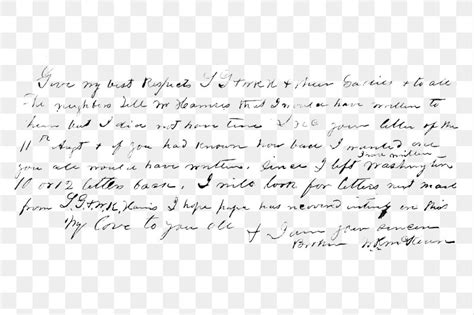 Give my best Respects & to all
The neighbors Tell Mr that I would have written to
him but I did not have time your letter of the
11th & if you had known how bad I wanted one
you all would have written. Since I left Washington
I have written
10 or 12 letters back. I will look for letters next
from I hope papa has recovered
My Love to you all & I am your sincere
Brother